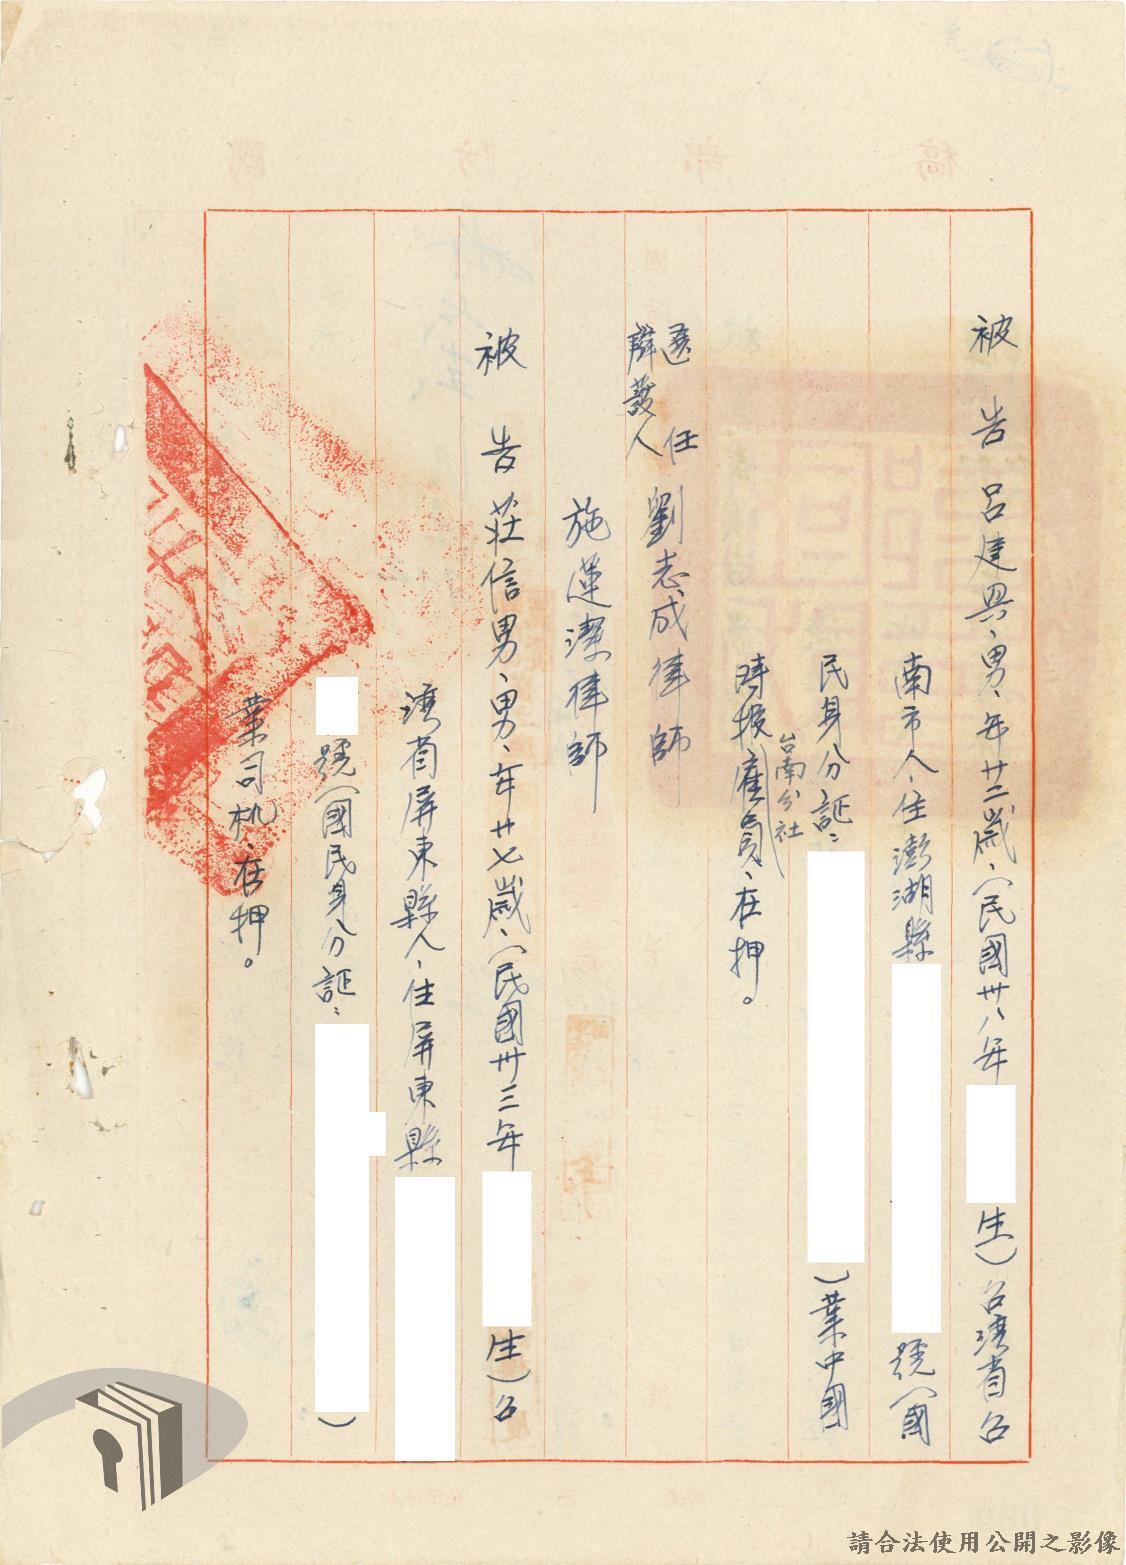 被告呂建興、男、年廿二歲、(民國卅八年
生)台湾省台
南市人、住澎湖縣
號(國
民身分証:
)業中國
時報雇員、在押。
台南分社
選任
辯護人
劉志成律師
施蓮潔律師
被告莊信男、男、年廿七歲、(民國卅三年
生)台
湾省屏東縣人、住屏東縣
號(國民身分証:
)
業司机、在押。
請合法使用公開之影像